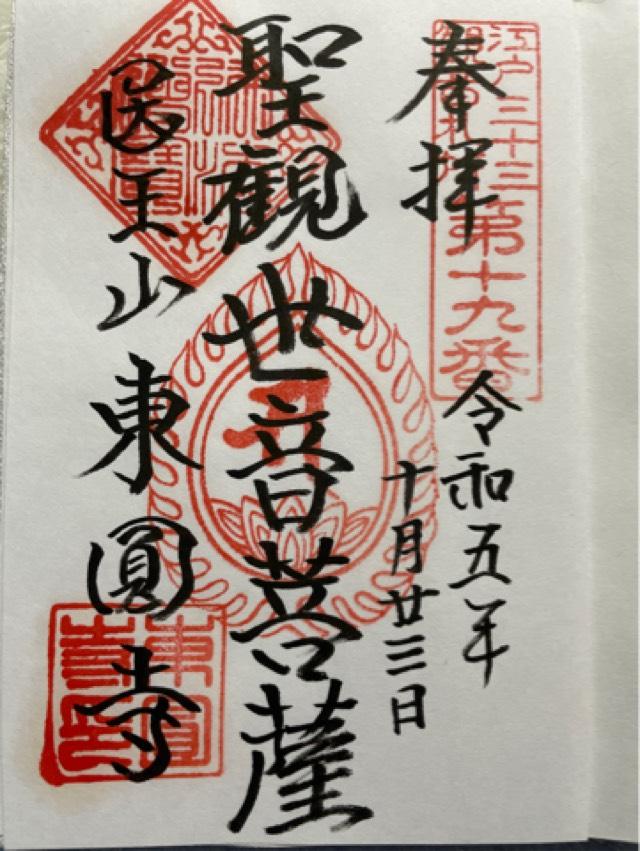 江戸三十三
第十九番
奉拝
令和五年
十月廿三日
聖観世音菩薩
医王山東圓寺
東圓
寺印